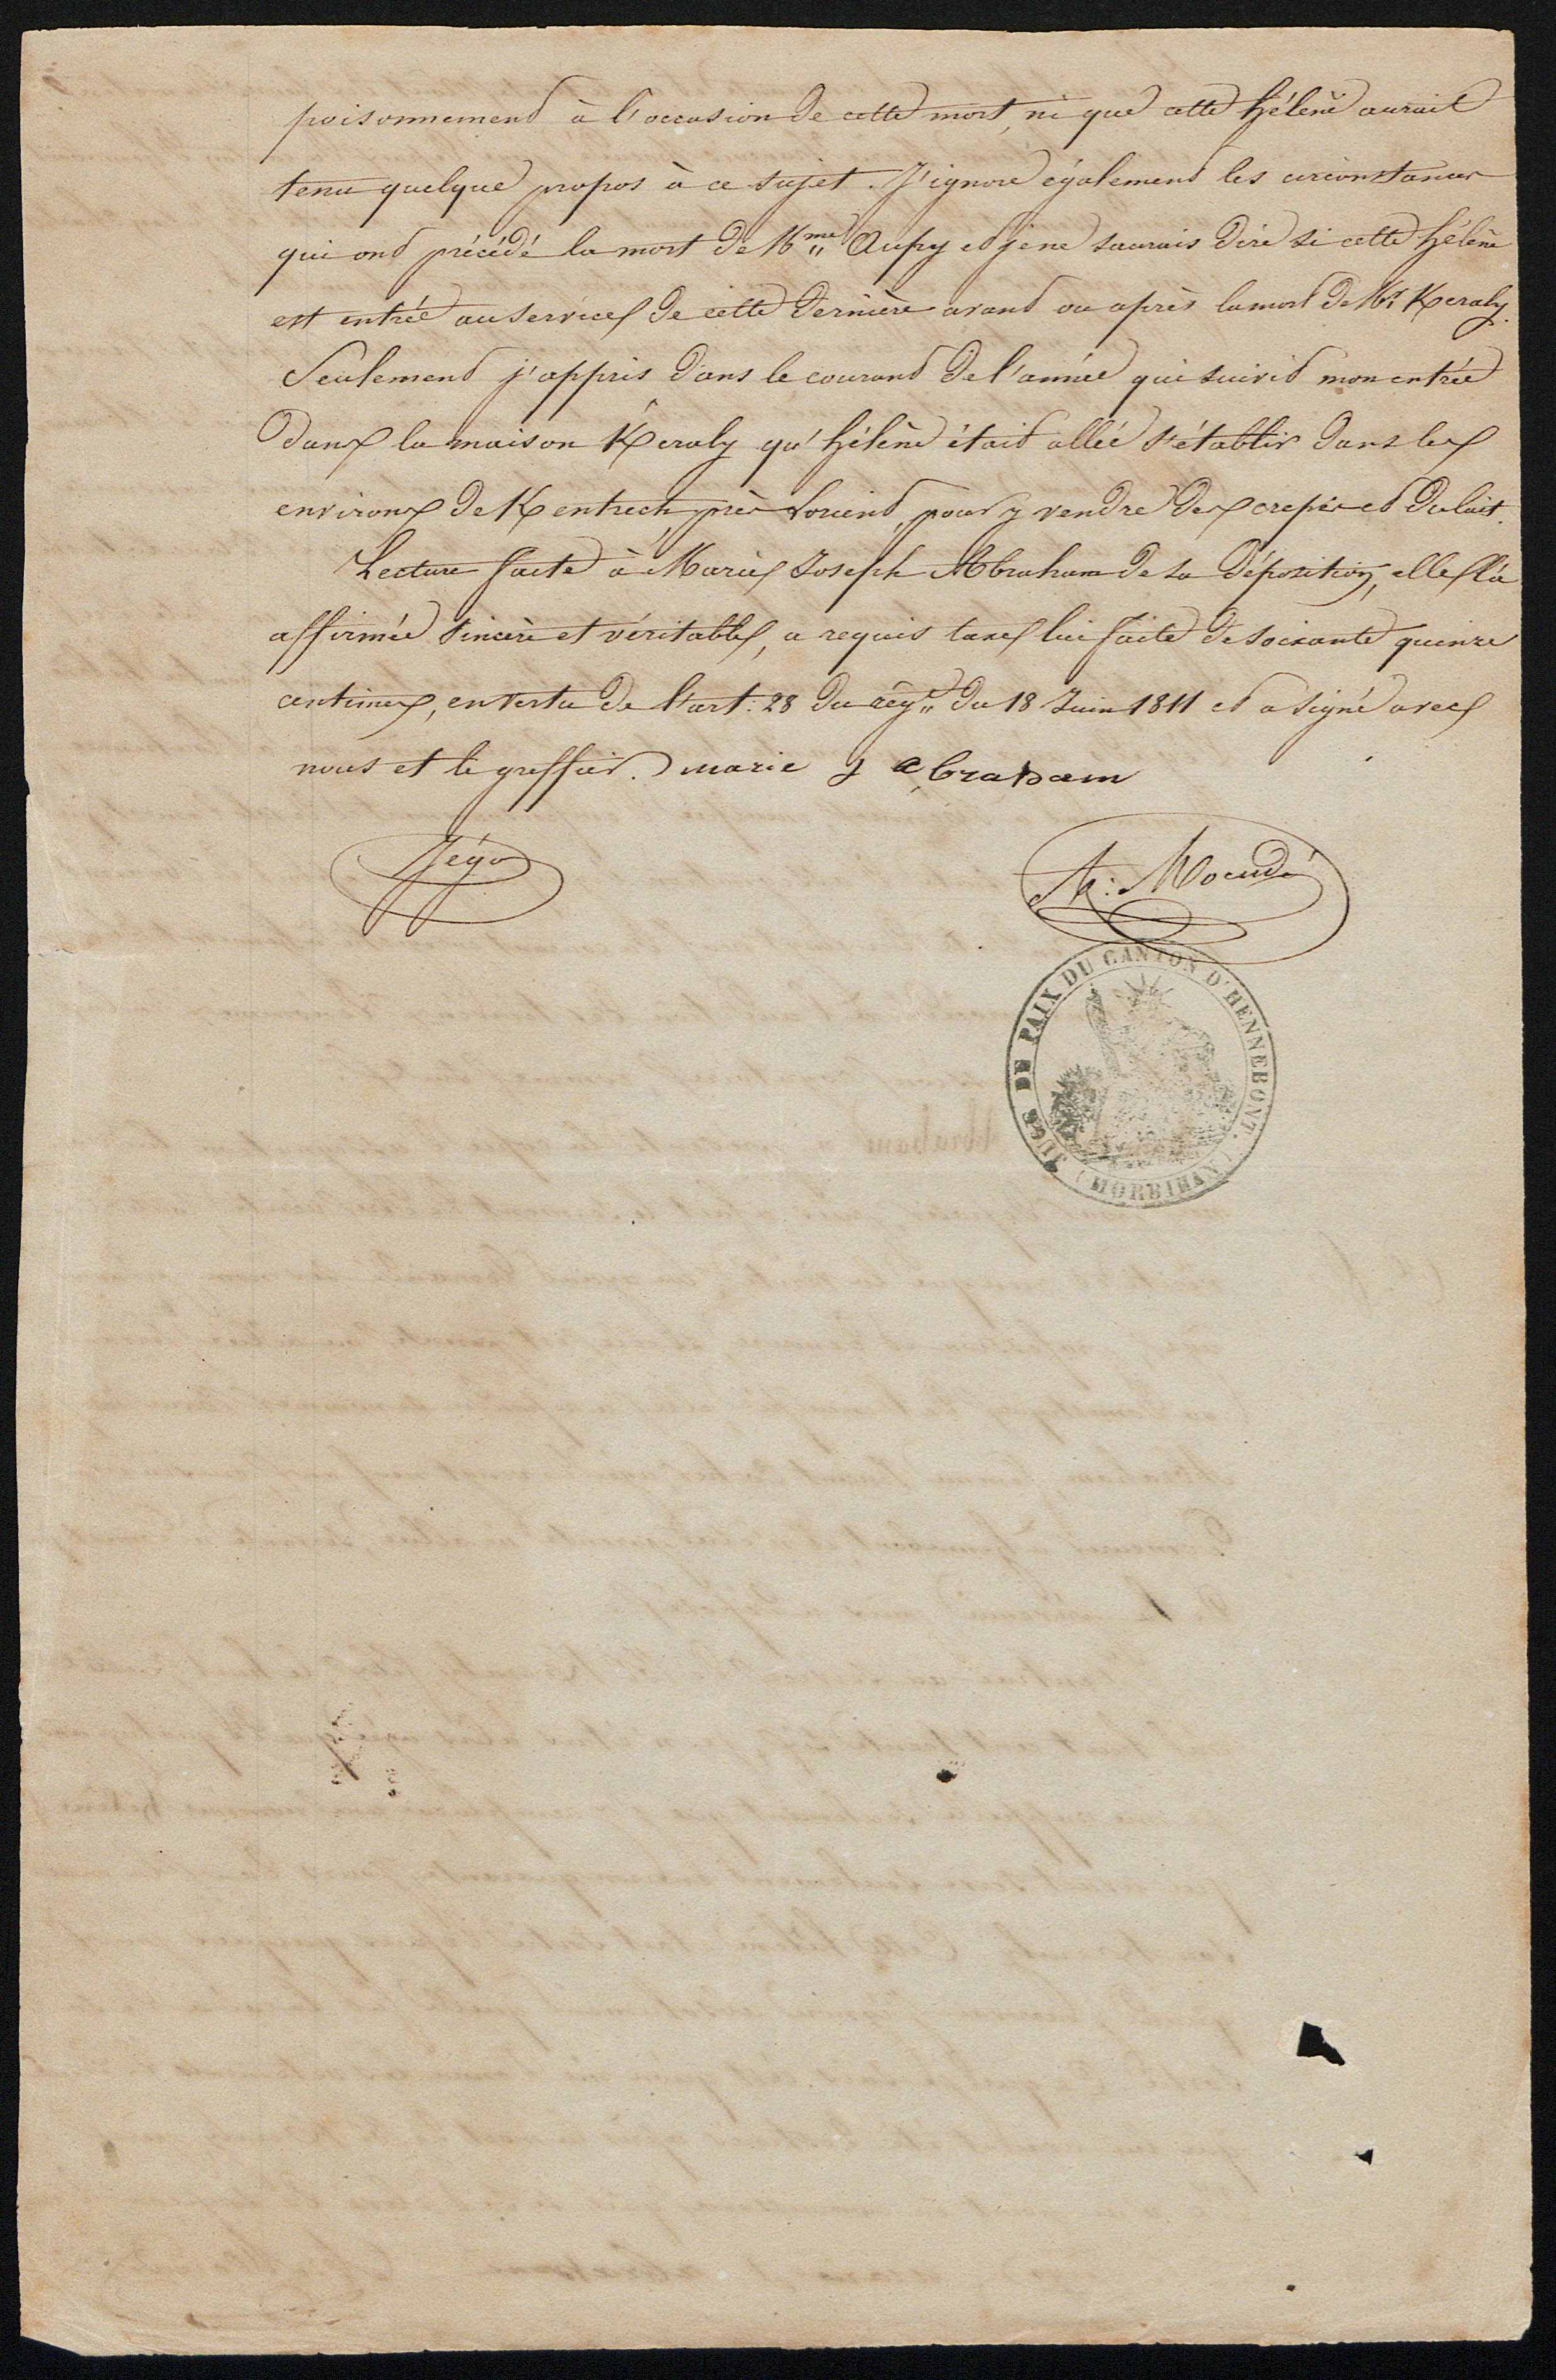 poisonnement à l'occasion de cette mort, ni que cette hélène aurait
tenu quelque propos à ce sujet. J'ignore également les circonstances
qui ont précédé la mort de Mme Aupy et je ne saurais dire si cette hélène
est entrée au service de cette dernière avant ou après la mort de Mr Keraly.
Seulement j'appris dans le courant de l'année qui suivit mon entrée
dans la maison Keraly qu'hélène était allée s'établir dans les
environs de Kentrech, près Lorient, pour y vendre des crepes et du lait.
Lecture faite à Marie Joseph Abraham de sa déposition, elle l'a
affirmée sincère et véritable, a requis taxe lui faite de soixante quinze
centimes, en vertu de l'art: 28 du règt du 18 Juin 1811 et a signé avec
nous et le greffier. marie j abraham
Jégo
JUGE DE PAIX DU CANTON D'HENNEBONT.
(MORBIHAN)